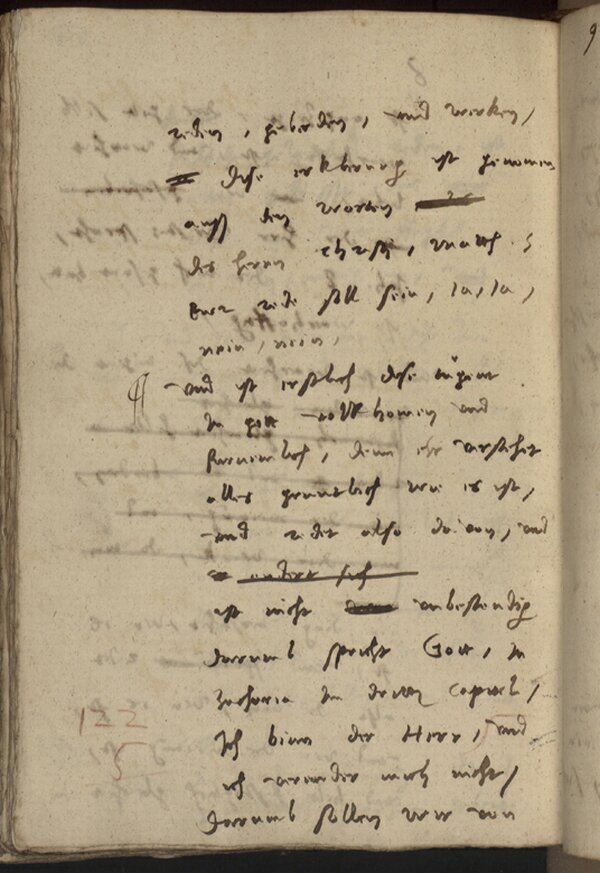 reden, geberden, und werken,
Dise erklerung ist genomen
auss den worten
des herrn Christi, Matth 5
Eur rede soll sein, ia, ia,
nein, nein,
und ist erstlich dise tugent
In gott volkhomen und
furnemlich, denn ehr verstehet
alles gruntlich wie es ist,
und redet also davon, und
endert sich
ist nicht unbestendig
Darumb spricht Gott, In
Zacharia Im dritten Capitel,
122
Ich binn der Herr, und
5
ich verender mich nicht,
Darumb sollen wir von
9